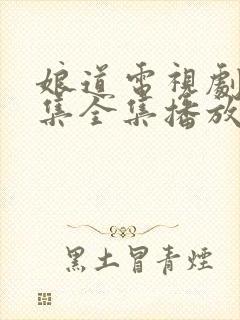 娘道電視劇
集全集播放
黑土冒青煙